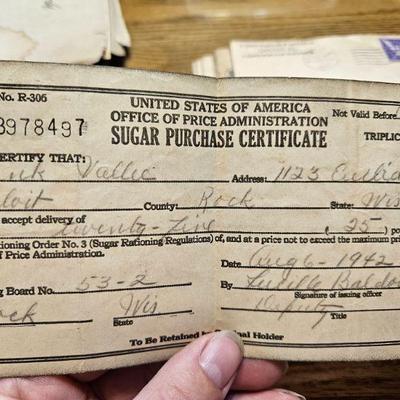 No. R-306
UNITED STATES OF AMERICA
OFFICE OF PRICE ADMINISTRATION
SUGAR PURCHASE CERTIFICATE
Not Valid Before
3978497
TRIPLIC
CERTIFY THAT:
Vallee Address: 1123 Euclid
loit County: Rock State: Wis
accept delivery of twenty-five (25) po
tioning Order No. 3 (Sugar Rationing Regulations) of, and at a price not to exceed the maximum pri
of Price Administration.
Date Aug 6-1942
g Board No. 53-2 By Lucille
Signature of issuing officer
ock Wis. Deputy
State Title
To Be Retained by Original Holder